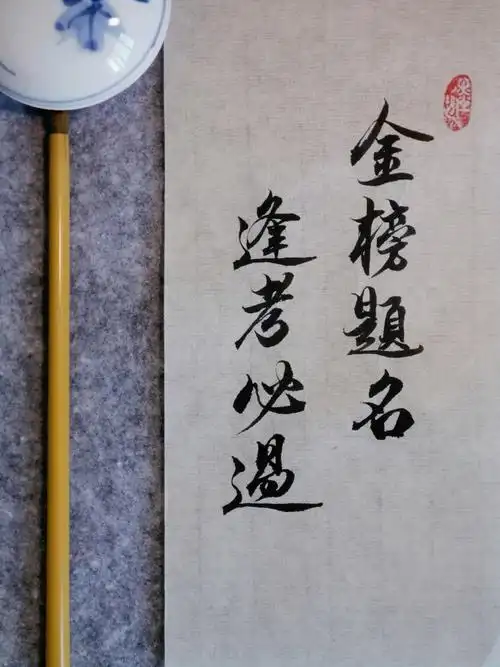 金榜題名
逢考必過